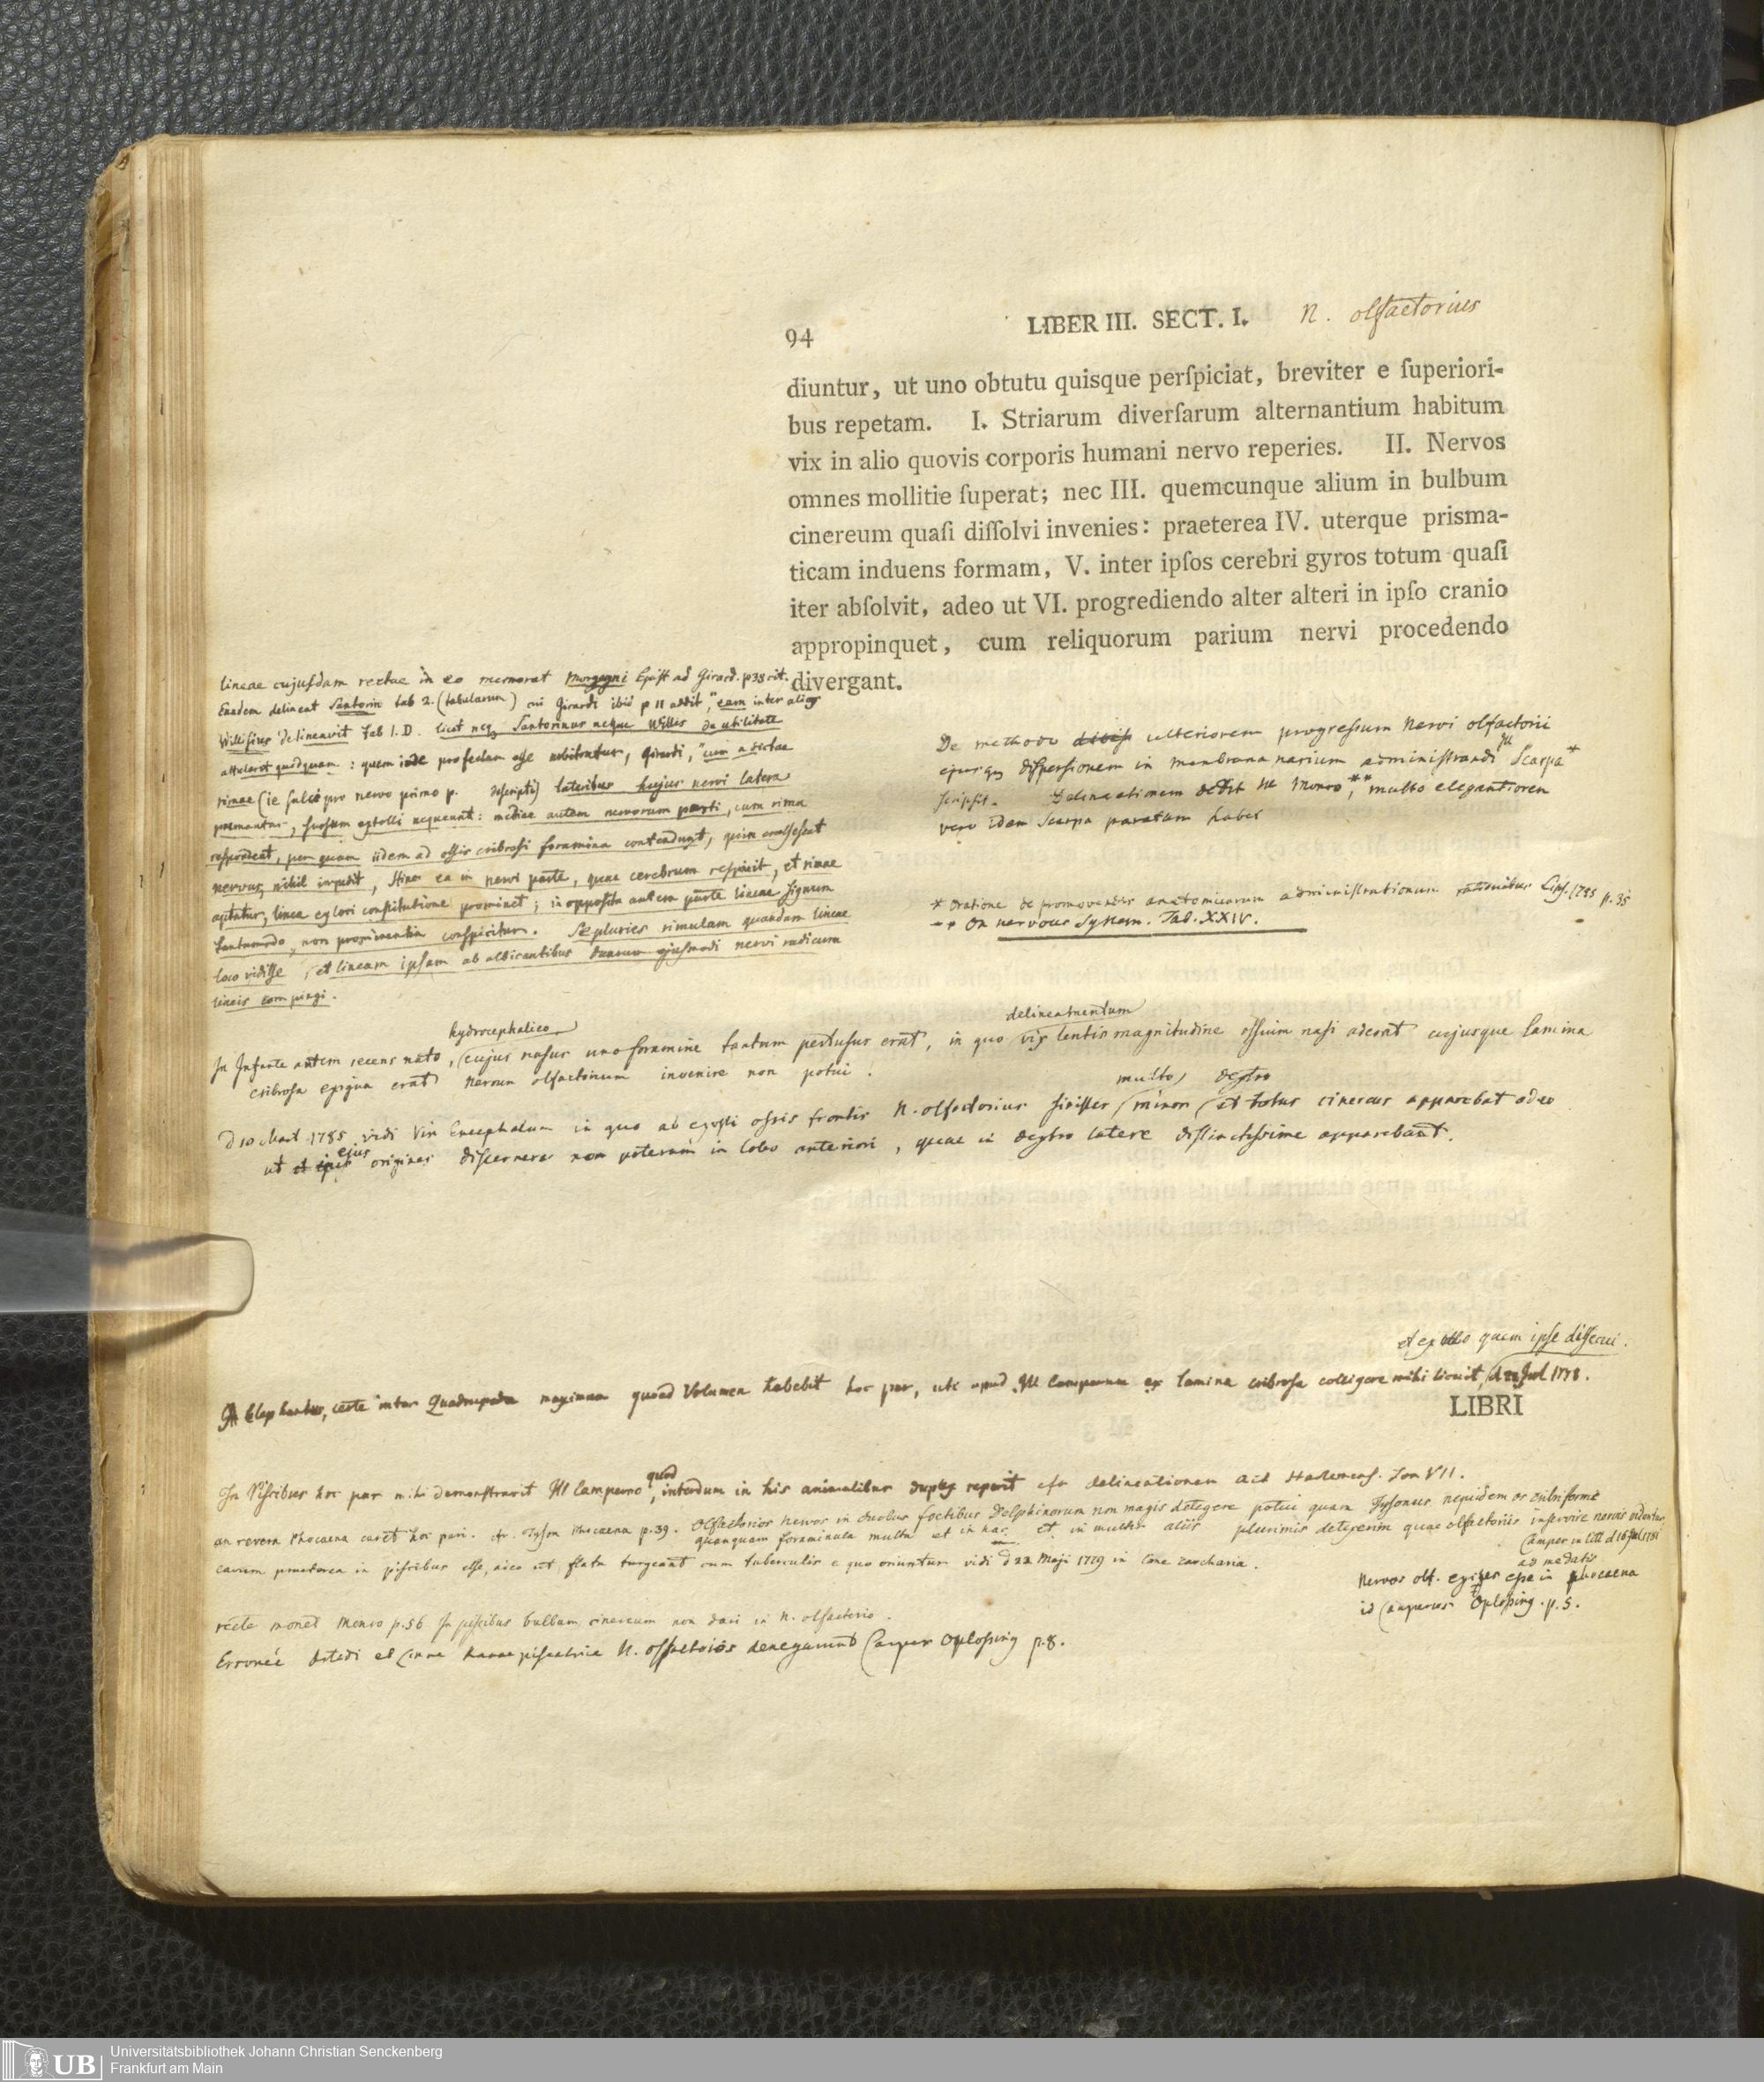 94
LIBER III. SECT. I.
N. olfactorius
diuntur, ut uno obtutu quisque perſpiciat, breviter e ſuperiori-
bus repetam. I. Striarum diverſarum alternantium habitum
vix in alio quovis corporis humani nervo reperies. II. Nervos
omnes mollitie ſuperat; nec III. quemcunque alium in bulbum
cinereum quaſi diſſolvi invenies: praeterea IV. uterque prisma-
ticam induens formam, V. inter ipſos cerebri gyros totum quaſi
iter abſolvit, adeo ut VI. progrediendo alter alteri in ipſo cranio
appropinquet, cum reliquorum parium nervi procedendo
divergant.
lineae cujuſdam rectae in eo memorat Morgagni Epiſt ad Girard. p 38
Eandem delineat Santorin tab 2. (tabularum) cui Girardi ibid p 11 addit, "eam inter alios
Williſius delineavit Tab 1. D. licet neq Santorinus neque Willis de utilitate
attulerat quidquam. : quem inde profectam eſſe arbitratur, Girardi, "cum a dictae
rimae (ie ſulci pro nervo primo p. descripti) lateribus hujus nervi latera
premantur, ſurſum extolli nequeant: mediae autem nervorum parti, cum rima
reſpondeat, per quam iidem ad oſſis cribroſi foramina contendunt, quin
nervus, nihil impedit, Hinc ea in nervi parte, quae cerebrum reſpicit, et rimae
aptatur, linea exiliori conſtitutione prominet; in oppoſita autem parte lineae ſignum
tantummodo, non prominentia conſpicitur. Se pluries rimulam quandam lineae
loco vidiſſe, et lineam ipſam ab albicantibus duarum ejusmodi nervi radicum
lineis compingi.
De methodo ulteriorem progreſſum Nervi olfactorii
ejusq diſperſionem in membrana narium adminiſtrandi Ill Scarpa *
ſcripſit. Delineationem dedit Ill Monro, ** multo elegantiorem
vero idem Scarpa paratam habet
* Oratione de promovendis anatomicarum adminiſtrationum rationibus Lipſ. 1785 p. 35
** On nervous Syſtem. Tab. XXIV.
hydrocephalico
delineamentum
In Infante autem recens nato, cujus naſus uno foramine tantum pertuſus erat, in quo vix lentis magnitudine oſſium naſi aderat cujusque lamina
cribroſa exigua erat nervum olfactorium invenire non potui.
multo dextro
D 10 Mart. 1785 vidi Viri Encephalum in quo ab exoſti oſſis frontis N. olfactorius ſiniſter minor et totus cinereus apparebat adeo
ut ejus origines diſcernere non poteram in lobo anteriori, quae in dextro latere diſtinctiſſime apparebant.
et ex illo quem ipſe diſſecui.
Elephantus, certe inter Quadrupeda maximum quoad Volumen habebit hoc par, uti apud Ill Camperum ex lamina cribroſa colligere mihi licuit, d 22 Jul 1778.
LIBRI
quod
In Piſcibus hoc par mihi demonſtravit Ill Camperus, interdum in his animalibus duplex reperit delineationem Act Harlemens. Tom VII.
an revera Phocaena caret hoc pari. cfr. Tyſon Phocaena p. 39. Olfactorios nervos in duobus foetibus Delphinorum non magis detegere potui quam Tyſonus, os cribriforme
quanquam foraminula multa et in hac et in multis aliis plurimis detexerim quae olfactoriis inſervire nervis videntur.
Camper in litt d 16 Jul 1781
cavum praeterea in piſcibus eſſe, adeo ut flatu turgeant cum tuberculis e quo oriuntur vidi d 22 Maji 1779 in Cane carcharia.
Nervos olf. eſſe in phocaena
id Camperus Oplosſing. p. 5.
recte monet Monro p. 56 In piſcibus bulbum cinereum non dari in N. olfactorio.
Erroneé Artedi et Linné Ranae piſcatricis N. olfactorios denegarunt Camper Oplosſing p. 8.